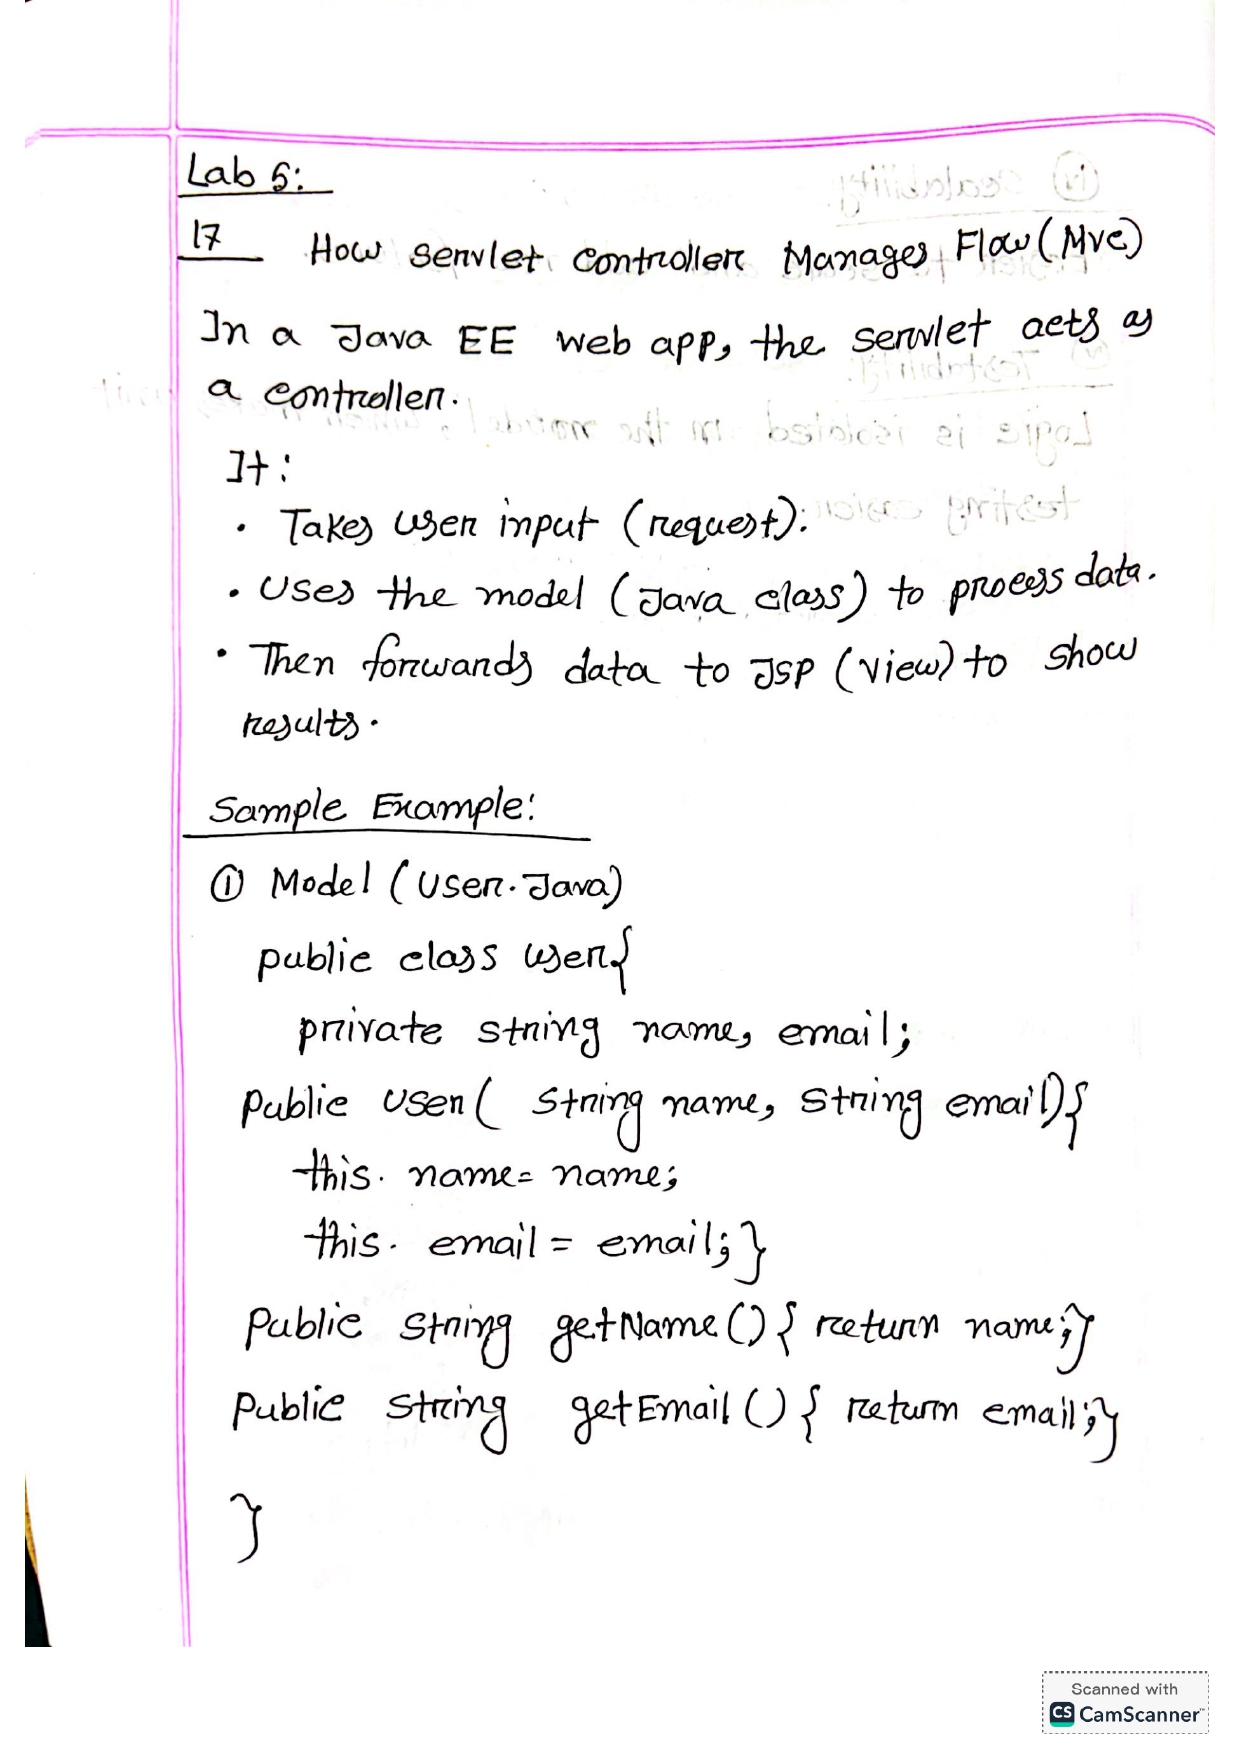 Lab 5:
17 How servlet controller Manages Flow (Mvc)
In a Java EE web app, the servlet acts as
a controller.
It:
• Takes user input (request).
• Uses the model (Java class) to process data.
• Then forwards data to JSP (view) to show
results.
Sample Example:
① Model (User.Java)
public class user{
private string name, email;
public user( string name, string email){
this. name= name;
this. email = email; }
Public string getName () { return name; }
Public string getEmail () { return email; }
}
Scanned with
CS CamScanner